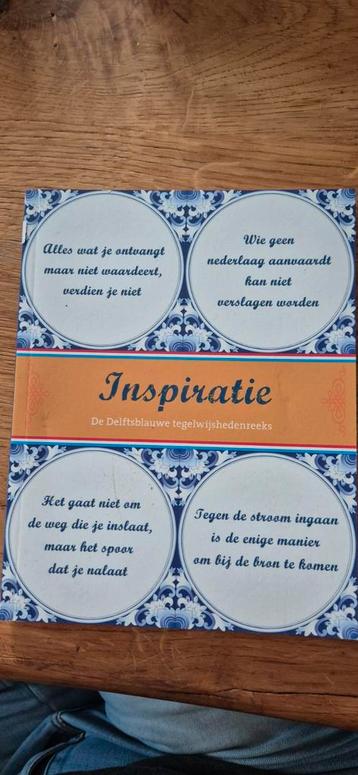 Alles wat je ontvangt
maar niet waardeert,
verdien je niet
Wie geen
nederlaag aanvaardt
kan niet
verslagen worden
Inspiratie
De Delftsblauwe tegelwijshedenreeks
Het gaat niet om
de weg die je inslaat,
maar het spoor
dat je nalaat
Tegen de stroom ingaan
is de enige manier
om bij de bron te komen